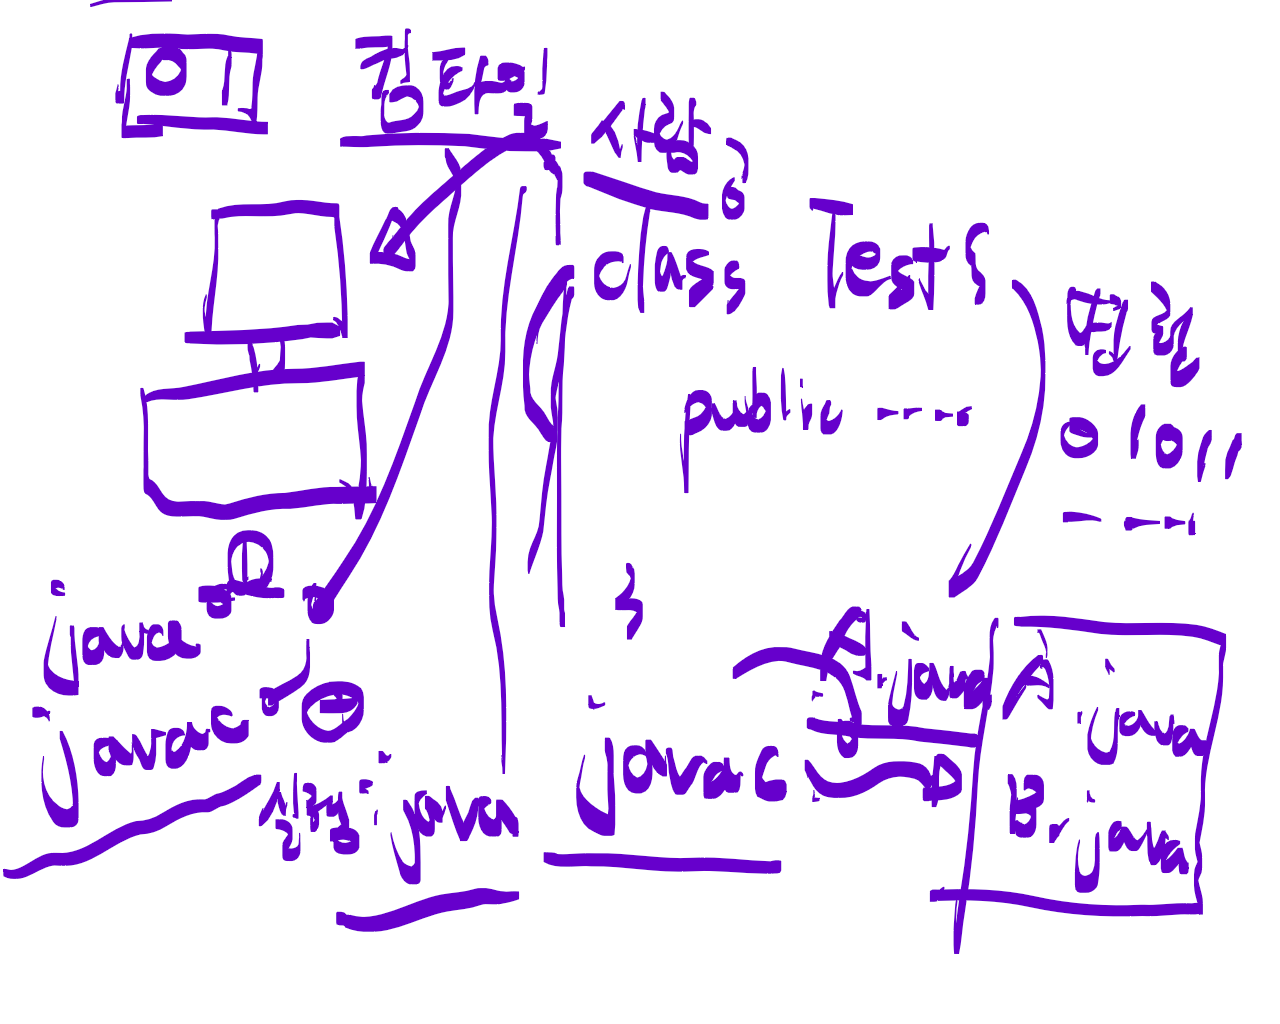 01
컴파일
사람
class Test {
public ----
}
명령
01011
----
java
javac
실행 : java
javac
A.java
A.java
B.java